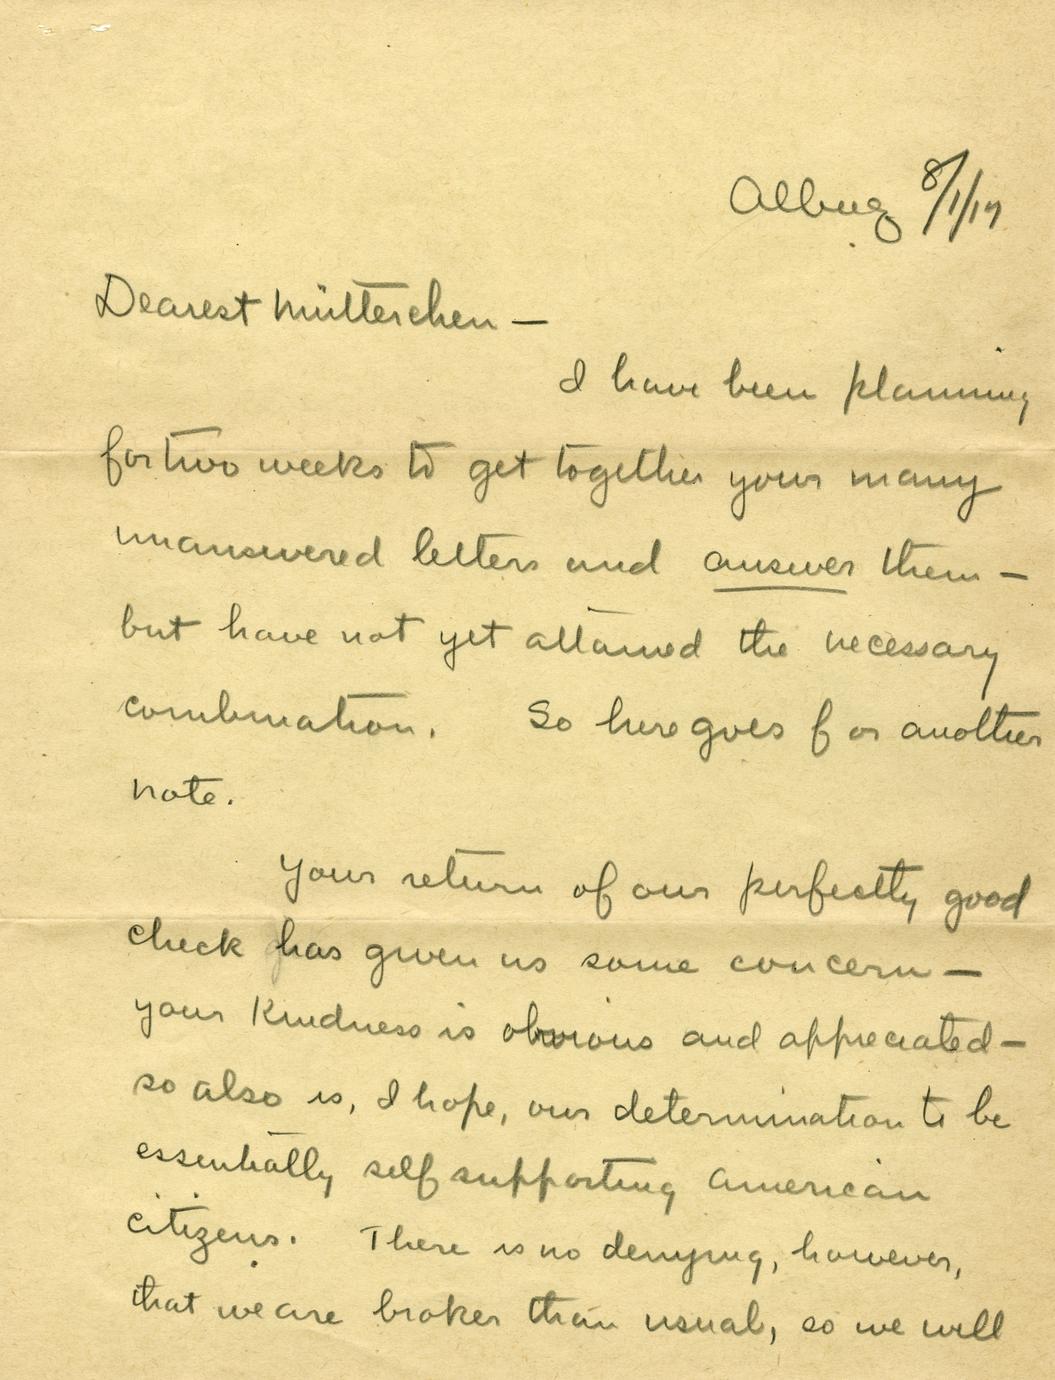 Albuq 8/1/17
Dearest Mütterchen —
I have been planning
for two weeks to get together your many
unanswered letters and answer them —
but have not yet attained the necessary
combination. So here goes for another
note.
Your return of our perfectly good
check has given us some concern —
your kindness is obvious and appreciated —
so also is, I hope, our determination to be
essentially self supporting American
citizens. There is no denying, however,
that we are broker than usual, so we will